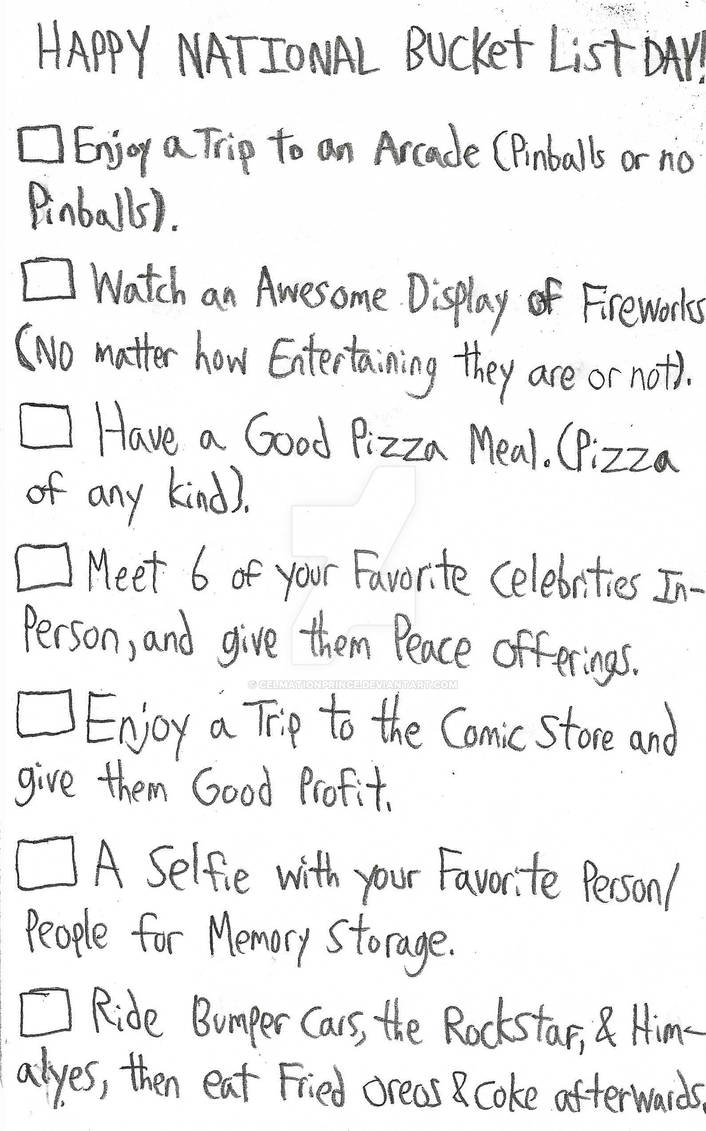 HAPPY NATIONAL BUCKET LIST DAY!
Enjoy a Trip to an Arcade (Pinballs or no
Pinballs).
Watch an Awesome Display of Fireworks
(No matter how Entertaining they are or not).
Have a Good Pizza Meal. (Pizza
of any kind).
Meet 6 of your Favorite Celebrities In-
Person, and give them Peace offerings.
© CELMATIONPRINCE.DEVIANTART.COM
Enjoy a Trip to the Comic Store and
give them Good Profit.
A Selfie with your Favorite Person/
People for Memory Storage.
Ride Bumper Cars, the Rockstar, & Him-
alyes, then eat Fried Oreos & Coke afterwards.